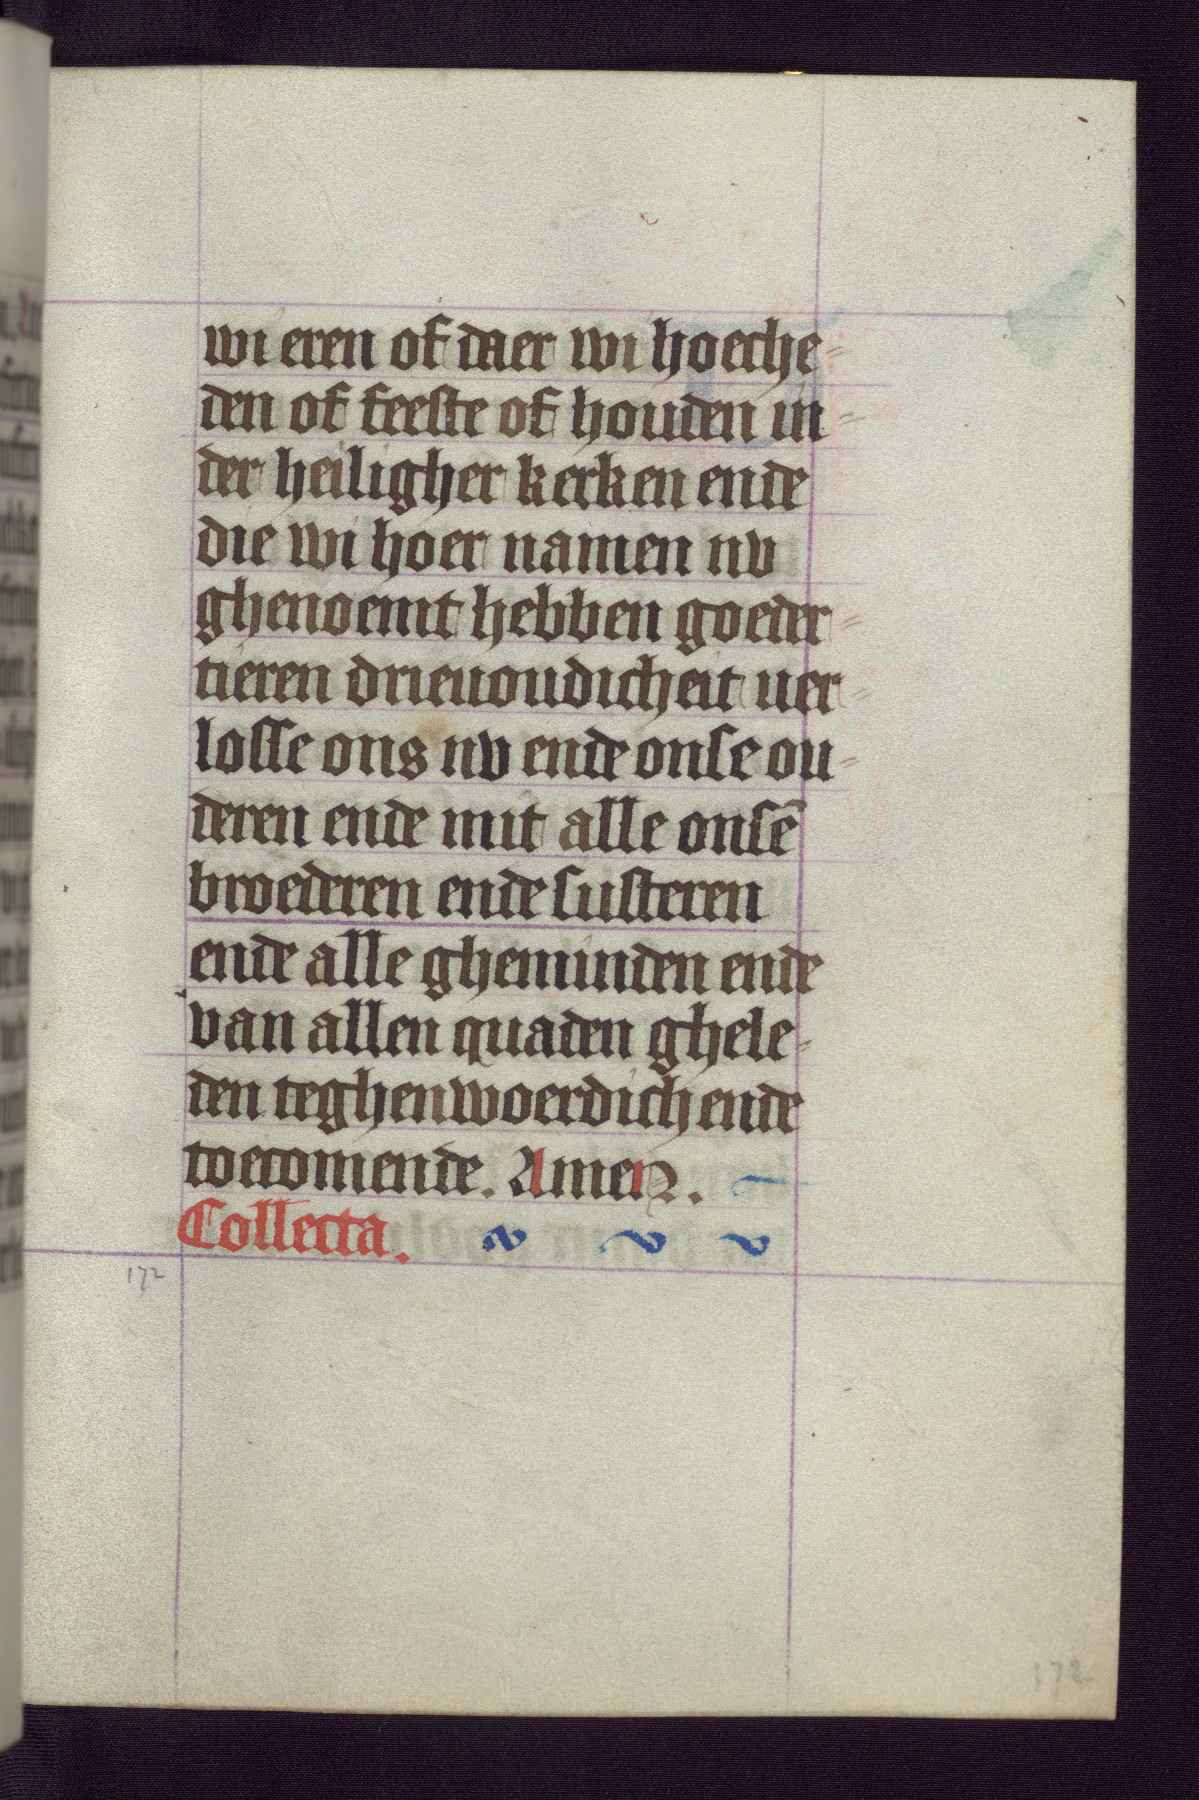 wi eren of daer wi hoeche-
den of feeste of houden in-
der heiligher kerken ende
die wi hoer namen nv
ghenoemt hebben goeder-
tieren drieuoudicheit uer-
losse ons nv ende onse ou-
deren ende mit alle onsē
broederen ende susteren
ende alle gheminden ende
van allen quaden ghele-
den teghenwoerdich ende
toecomende. Amen.
Collecta.
172
172